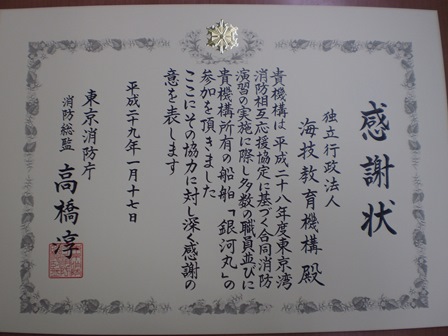 感謝状
独立行政法人
海技教育機構 殿
貴機構は平成二十八年度東京湾
消防相互応援協定に基づく合同消防
演習の実施に際し多数の職員並びに
貴機構所有の船舶「銀河丸」の
参加を頂きました
ここにその協力に対し深く感謝の
意を表します
平成二十九年一月十七日
東京消防庁
消防総監 高橋淳